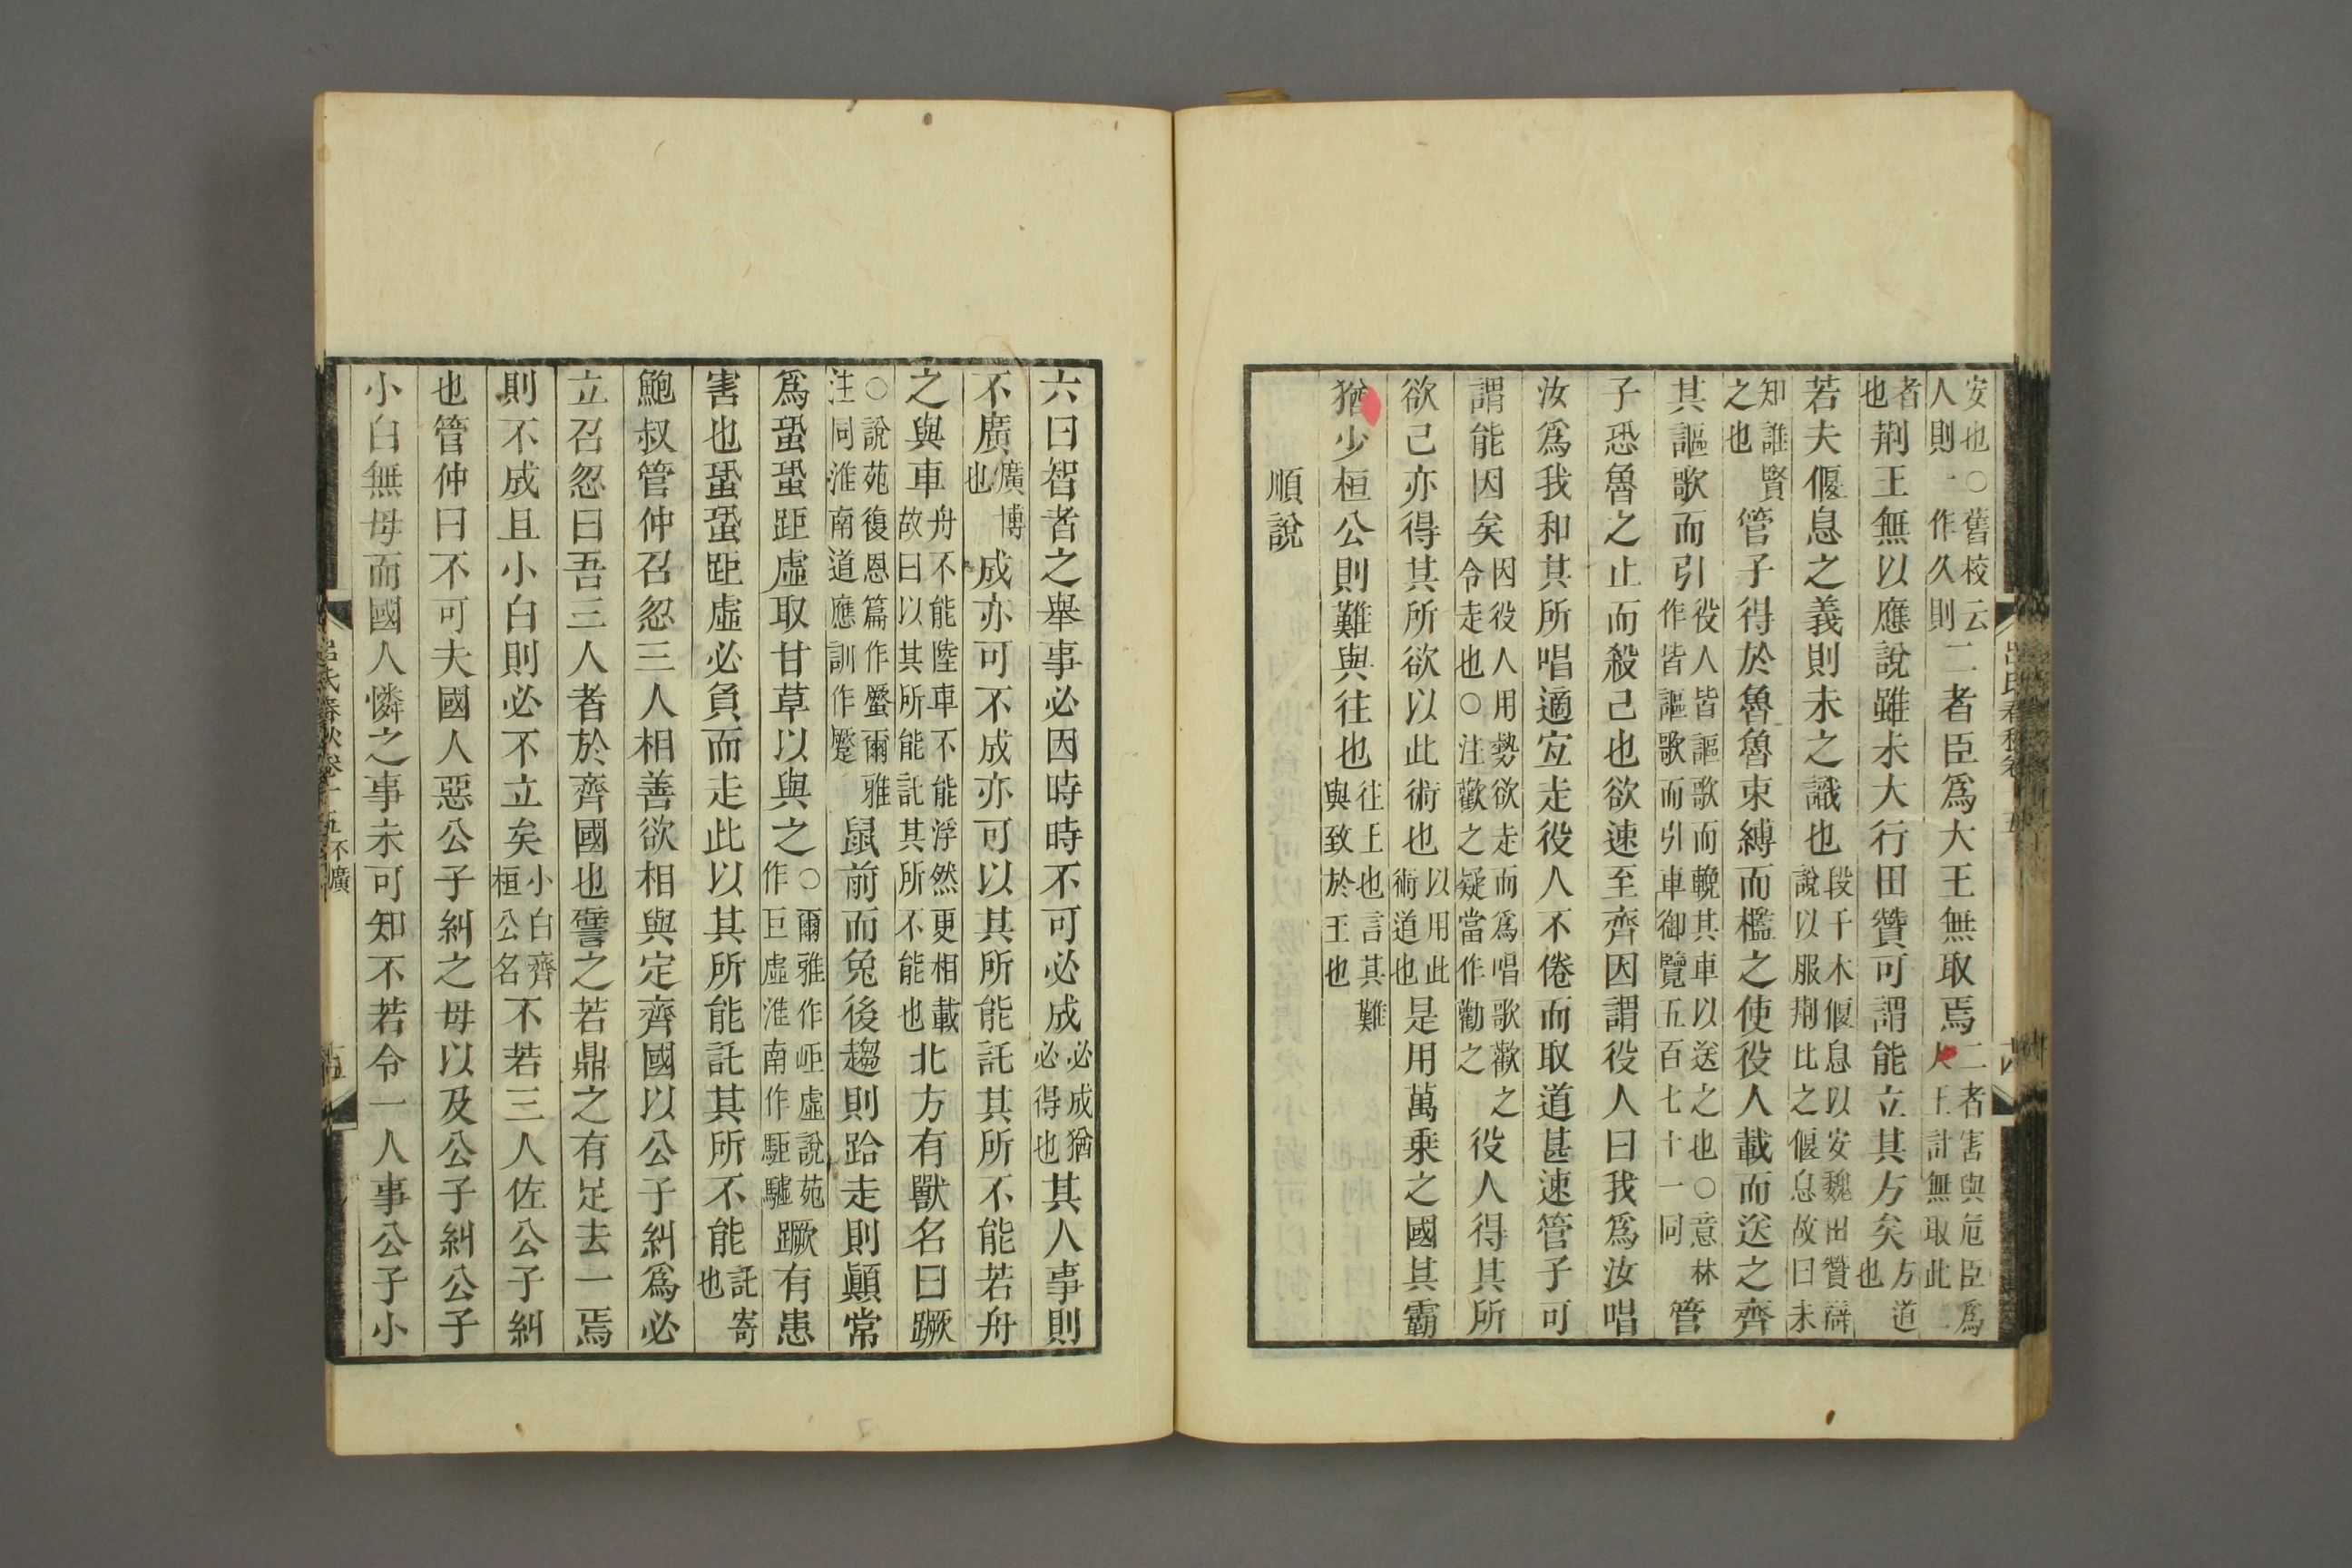 安也○舊校云人則一作久則二者臣爲大王無取焉二者害與危臣爲大王計無取此二
者也荆王無以應說雖未大行田贊可謂能立其方矣方道也
若夫偃息之義則未之識也段干木偃息以安魏田贊辭說以服荆比之偃息故曰未
知誰賢之也管子得於魯魯束縛而檻之使役人載而送之齊
其謳歌而引役人皆謳歌而輓其車以送之也○意林作皆謳歌而引車御覽五百七十一同管
子恐魯之止而殺己也欲速至齊因謂役人曰我爲汝唱
汝爲我和其所唱適宜走役人不倦而取道甚速管子可
謂能因矣因役人用勢欲走而爲唱歌歡之令走也○注歡之疑當作勸之役人得其所
欲己亦得其所欲以此術也以用此術道也是用萬乘之國其霸
猶少桓公則難與往也往王也言其難與致於王也
順說
六曰智者之舉事必因時時不可必成必成猶必得也其人事則
不廣廣博也成亦可不成亦可以其所能託其所不能若舟
之與車舟不能陸車不能浮然更相載故曰以其所能託其所不能也北方有獸名曰蹶
○說苑復恩篇作蟨爾雅注同淮南道應訓作蹷鼠前而兔後趨則跲走則顚常
爲蛩蛩距虛取甘草以與之○爾雅作岠虛說苑作巨虛淮南作駏驉蹶有患
害也蛩蛩距虛必負而走此以其所能託其所不能託寄也
鮑叔管仲召忽三人相善欲相與定齊國以公子糾爲必
立召忽曰吾三人者於齊國也譬之若鼎之有足去一焉
則不成且小白則必不立矣小白齊桓公名不若三人佐公子糾
也管仲曰不可夫國人惡公子糾之母以及公子糾公子
小白無母而國人憐之事未可知不若令一人事公子小
呂氏春秋卷十五 不廣